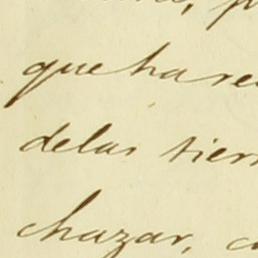 que ha re
delas tierr
chazar, c